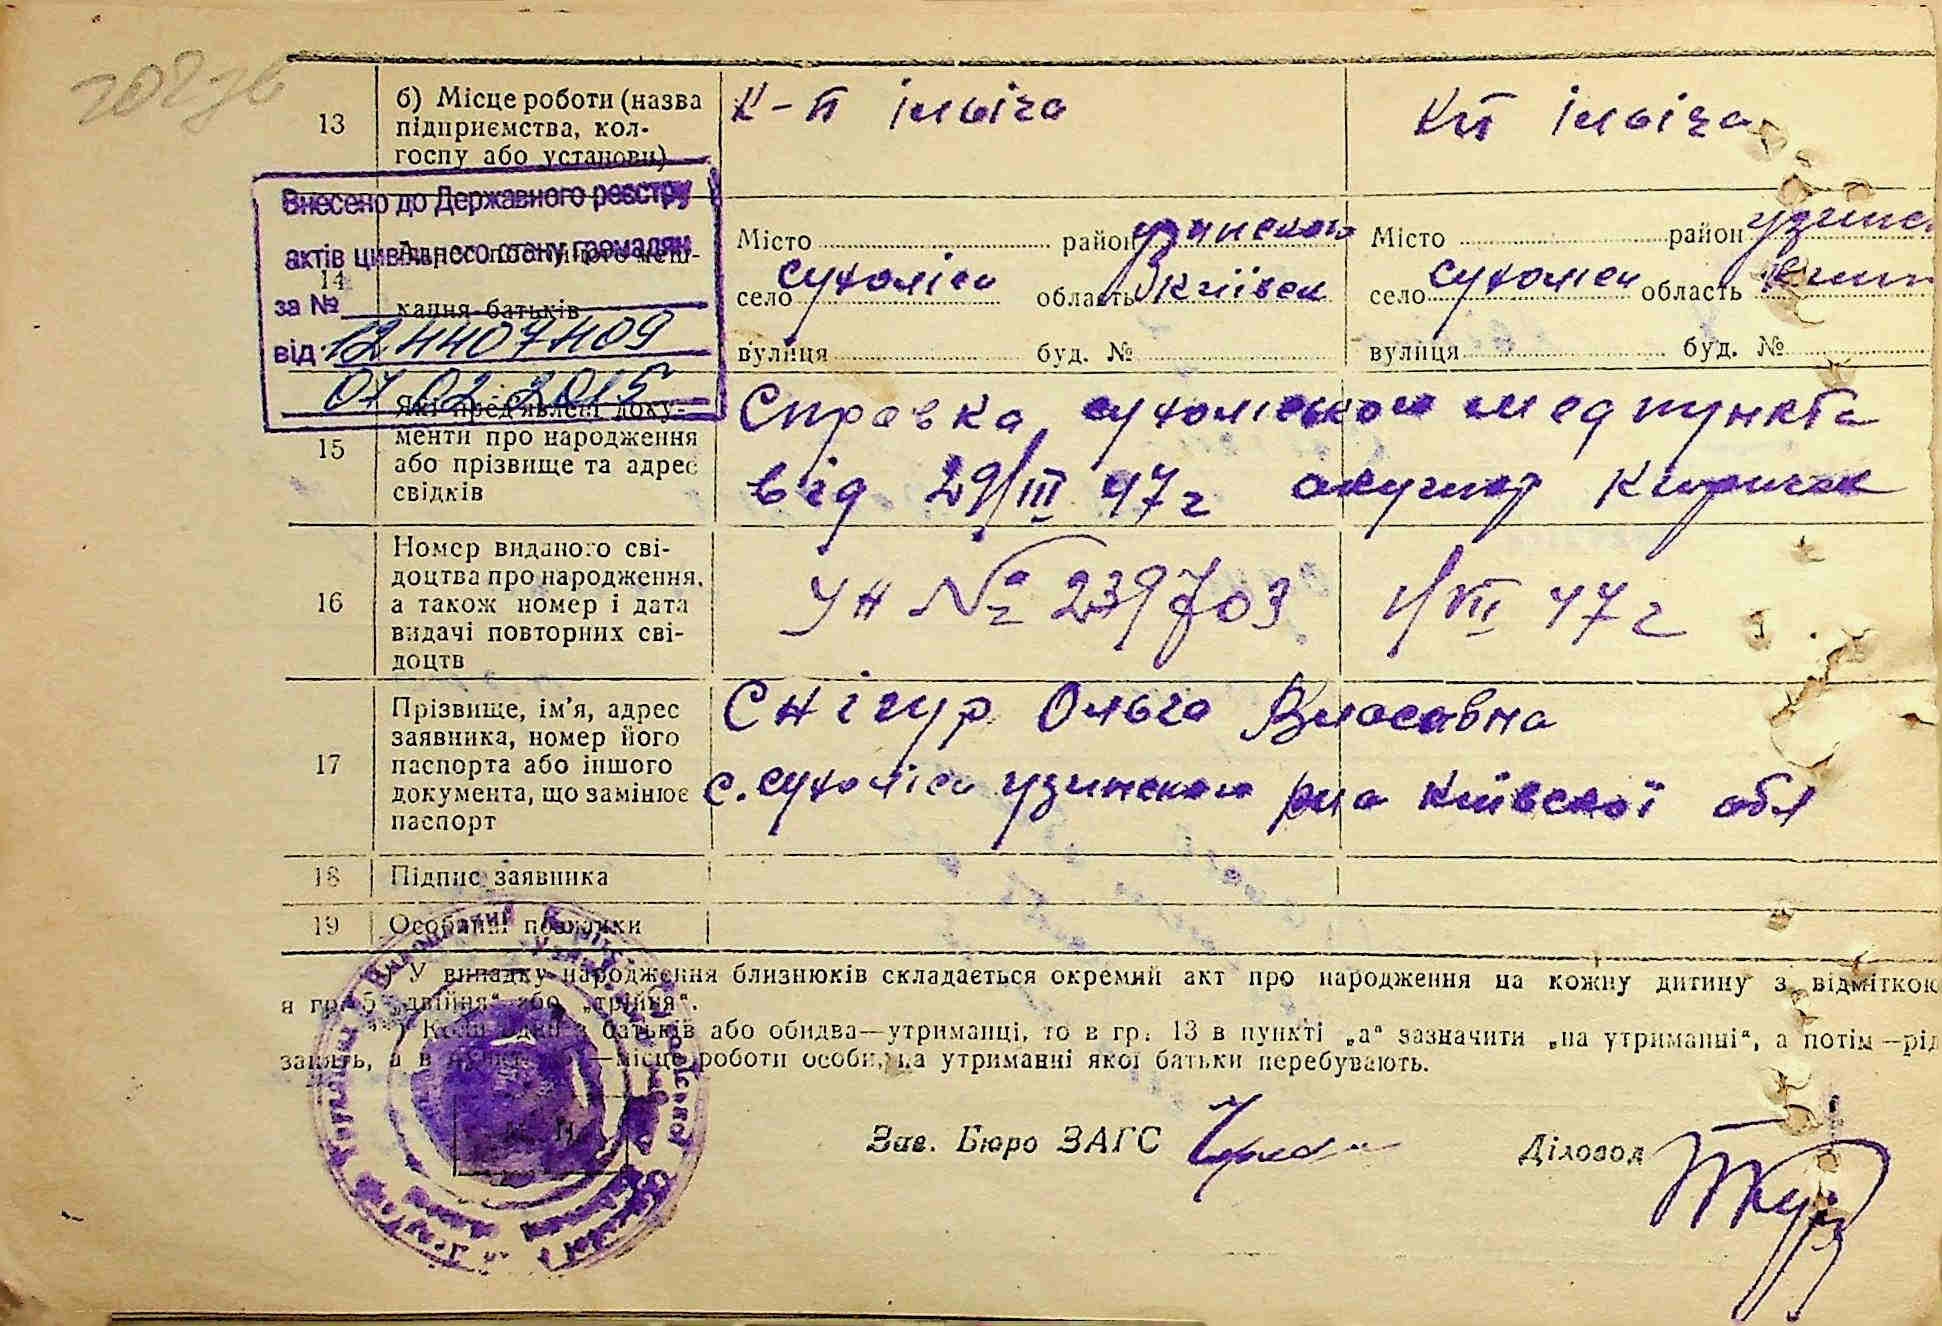 13
б) Місце роботи (назва
підприємства, кол-
госпу або установи)
К-п ільіча
Кп ільіча
Внесено до Державного реєстру
актів цивільного стану громадян
за №
від 12.4407409
07.02.2015
14
кання батьків
Місто район узинского
село сухоліси область Київск
вулиця буд. №
Місто район
село сухоліси область
вулиця буд. №
15
Які пред'явлені доку-
менти про народження
або прізвище та адрес
свідків
Справка сухоліского медпункта
від 29/III 47 г акушер
16
Номер виданого сві-
доцтва про народження,
а також номер і дата
видачі повторних сві-
доцтв
УН № 239703 1/VII 47 г
17
Прізвище, ім'я, адрес
заявника, номер його
паспорта або іншого
документа, що замінює
паспорт
Снігур Ольга Власовна
с. сухоліси узинского р-на Київскої обл
18 Підпис заявника
19 Особливі помітки
У випадку народження близнюків складається окремий акт про народження на кожну дитину з відміткою
я гр. 5 „двійня“ або „трійня“.
Коли один з батьків або обидва—утриманці, то в гр. 13 в пункті „а“ зазначити „на утриманні“, а потім —рід
занять, а в —місце роботи особи, на утриманні якої батьки перебувають.
Зав. Бюро ЗАГС Діловод